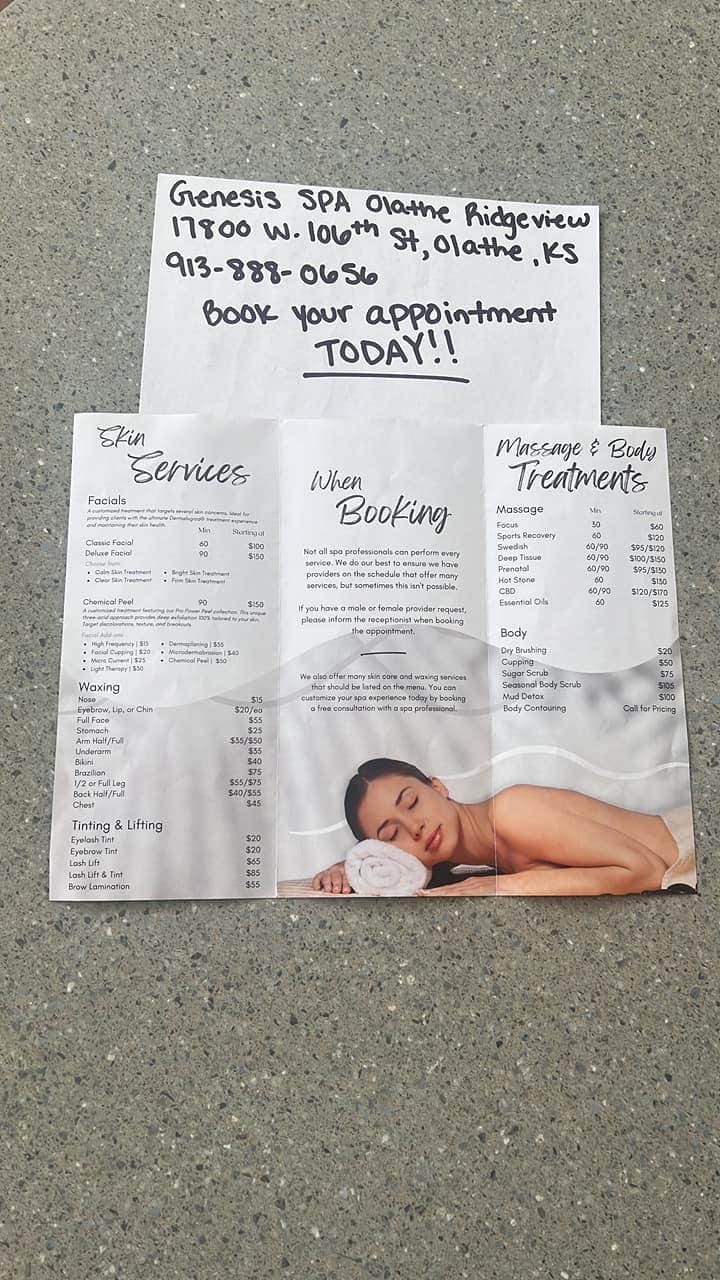 Genesis SPA Olathe Ridgeview
17800 W. 106th St, Olathe, KS
913-888-0656
Book your appointment
TODAY!!
Skin
Services
Facials
A customized treatment that targets several skin concerns. Ideal for
providing clients with the ultimate Dermalogica® treatment experience
and maintaining their skin health.
Min Starting at
Classic Facial 60 $100
Deluxe Facial 90 $150
Choose from:
• Calm Skin Treatment • Bright Skin Treatment
• Clear Skin Treatment • Firm Skin Treatment
Chemical Peel 90 $150
A customized treatment featuring our Pro Power Peel collection. This unique
three-acid approach provides deep exfoliation 100% tailored to your skin.
Target discolorations, texture, and breakouts.
Facial Add-ons
• High Frequency | $15 • Dermaplaning | $35
• Facial Cupping | $20 • Microdermabrasion | $40
• Micro Current | $25 • Chemical Peel | $50
• Light Therapy | $30
Waxing
Nose $15
Eyebrow, Lip, or Chin $20/ea
Full Face $55
Stomach $25
Arm Half/Full $35/$50
Underarm $35
Bikini $40
Brazilian $75
1/2 or Full Leg $55/$75
Back Half/Full $40/$55
Chest $45
Tinting & Lifting
Eyelash Tint $20
Eyebrow Tint $20
Lash Lift $65
Lash Lift & Tint $85
Brow Lamination $55
When
Booking
Not all spa professionals can perform every
service. We do our best to ensure we have
providers on the schedule that offer many
services, but sometimes this isn't possible.
If you have a male or female provider request,
please inform the receptionist when booking
the appointment.
We also offer many skin care and waxing services
that should be listed on the menu. You can
customize your spa experience today by booking
a free consultation with a spa professional.
Massage & Body
Treatments
Massage Min Starting at
Focus 30 $60
Sports Recovery 60 $120
Swedish 60/90 $95/$120
Deep Tissue 60/90 $100/$150
Prenatal 60/90 $95/$130
Hot Stone 60 $130
CBD 60/90 $120/$170
Essential Oils 60 $125
Body
Dry Brushing $20
Cupping $50
Sugar Scrub $75
Seasonal Body Scrub $105
Mud Detox $100
Body Contouring Call for Pricing